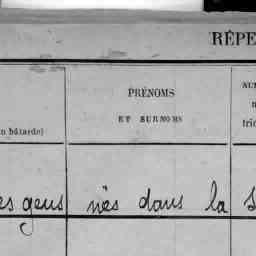 RÉPE
PRÉNOMS
ET SURNOMS
n bâtarde)
es gens nés dans la